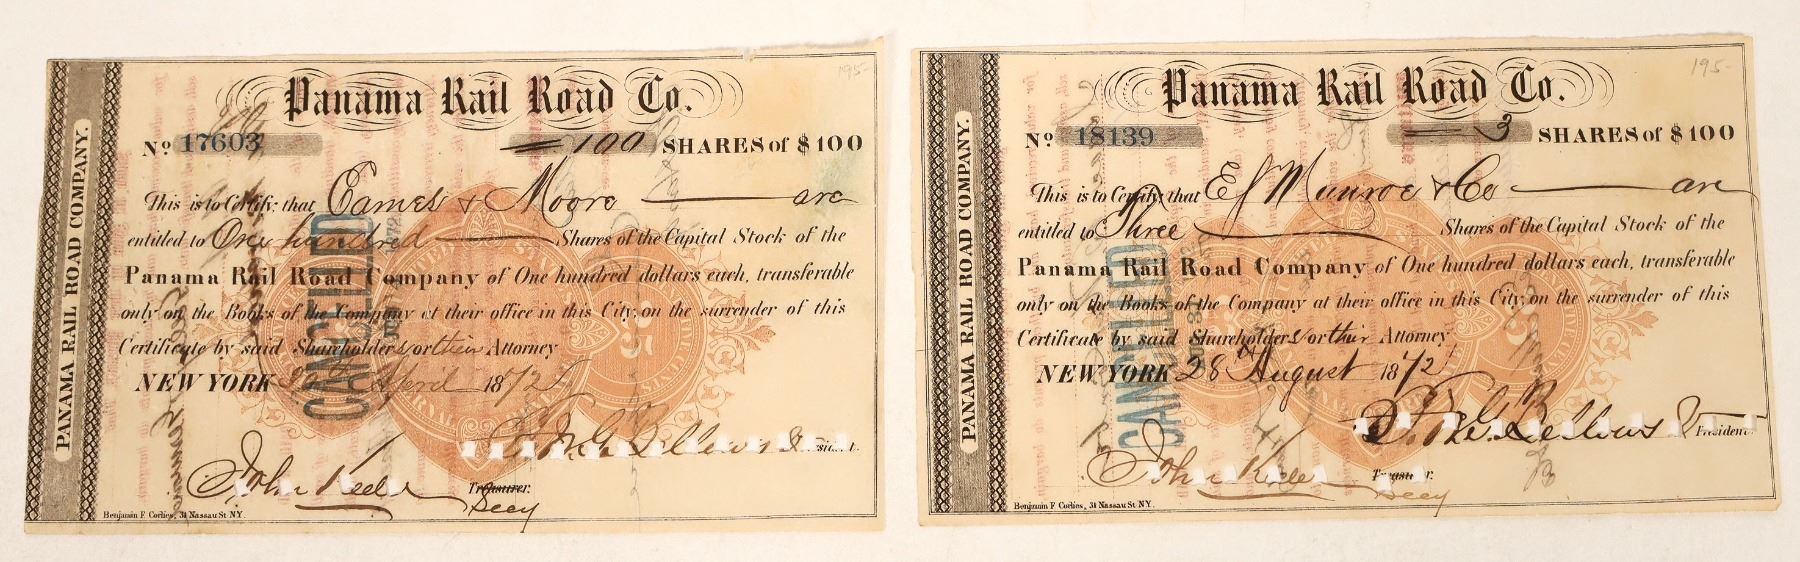 PANAMA RAIL ROAD COMPANY.
Panama Rail Road Co.
195-
No 17603 = 100 SHARES of $100
This is to Certify that Eames & Moore are
entitled to One hundred Shares of the Capital Stock of the
Panama Rail Road Company of One hundred dollars each, transferable
only on the Books of the Company at their office in this City, on the surrender of this
Certificate by said Shareholders or their Attorney
NEW YORK April 1872
CANCELLED
President.
John Treasurer.
Secy
Benjamin F Corlies, 31 Nassau St NY.
PANAMA RAIL ROAD COMPANY.
Panama Rail Road Co.
195-
No 18139 = 3 SHARES of $100
This is to Certify that E J Munroe & Co are
entitled to Three Shares of the Capital Stock of the
Panama Rail Road Company of One hundred dollars each, transferable
only on the Books of the Company at their office in this City, on the surrender of this
Certificate by said Shareholders or their Attorney
NEW YORK 28 August 1872
CANCELLED
President.
John Treasurer.
Secy
Benjamin F Corlies, 31 Nassau St NY.